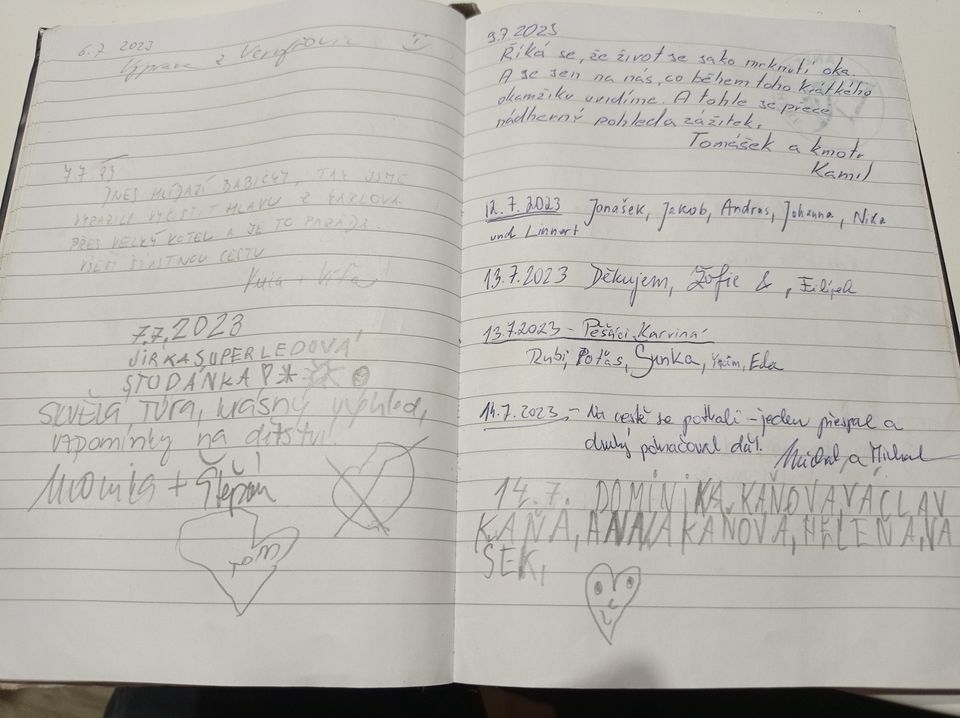 6.7. 2023
Výprava z
7.7.
DNES HLÍDAJÍ BABIČKY, TAK JSME
VYRAZILI T HLAVU Z KARLOVA
PŘES VELKÝ KOTEL A JE TO PARÁDA
ŠŤASTNOU CESTU
+ Víťa
7.7.2023
JIRKA SUPER LEDOVÁ
STUDÁNKA!
SKVĚLÁ TÚRA, krásný výhled,
vzpomínky na dětství!
+ Štěpán
TOM
9.7.2023
Říká se, že život se jako mrknutí oka.
A se sen na nás, co během toho krátkého
okamžiku uvidíme. A tohle je přece
nádherný pohled a zážitek.
Tomášek a kmotr
Kamil
12.7.2023 Jonášek, Jakob, Andras, Johanna, Nika
und Linnert
13.7.2023 Děkujem, Žofie &, Filípek
13.7.2023 - Pěšáci Karviná
Rubi, Poťas, Sunka, Eda
14.7.2023 - Na cestě se potkali - jeden přespal a
druhý pokračoval dál! Michal a Michal
14.7. DOMINIKA KAŇOVA, VÁCLAV
KAŇA, ANNA KAŇOVÁ, HELENA, VA
ŠEK,